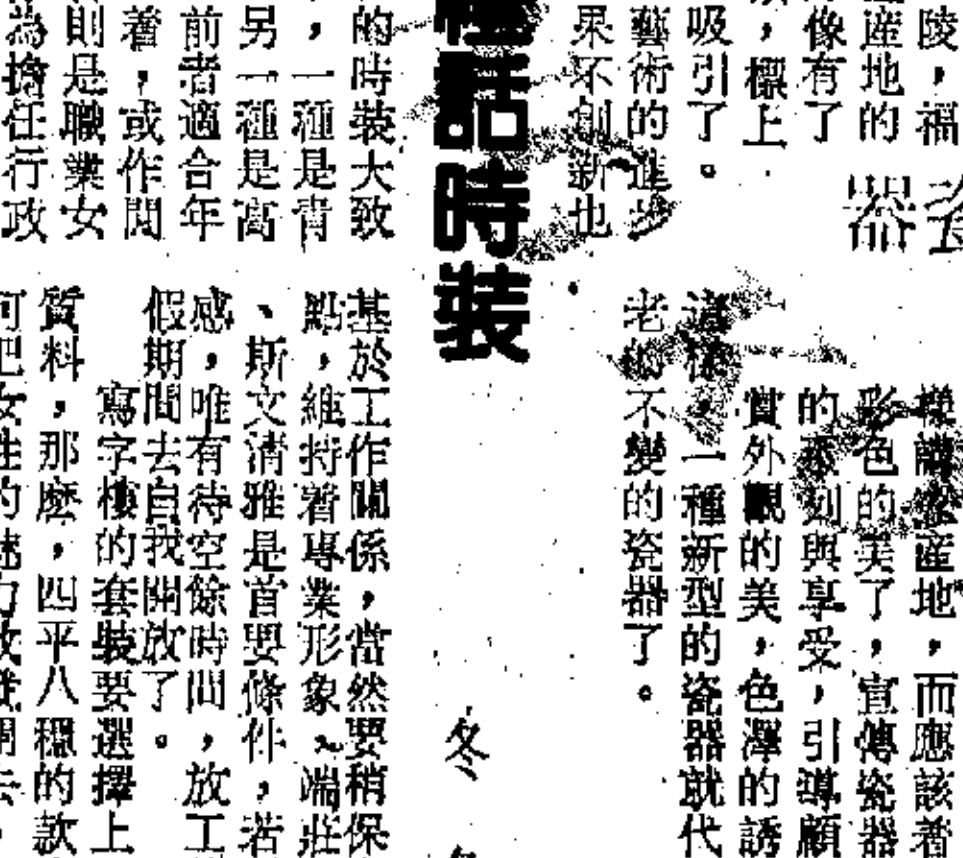 陵，福
產地的
像有了
，標上
吸引了。
藝術的進步
果不創新也
瓷
器
產地，而應該着
彩色的美了，宣傳瓷器
的 刻與享受，引導顧
賞外觀的美，色澤的誘
這樣，一種新型的瓷器就代
老的不變的瓷器了。
話時裝
冬
的時裝大致
，一種是青
另一種是高
前者適合年
着，或作閒
則是職業女
為擔任行政
基於工作關係，當然要稍保
點，維持着專業形象、端莊
、斯文清雅是首要條件，若
感，唯有待空餘時間，放工
假期間去自我開放了。
寫字樓的套裝要選擇上
質料，那麽，四平八穩的款
可把女性的魅力